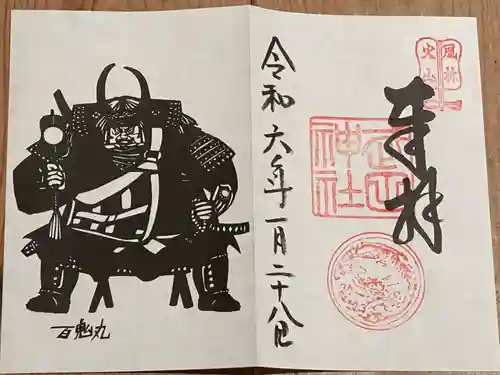 風林
火山
奉拝
神社
令和六年一月二十八日
百鬼丸